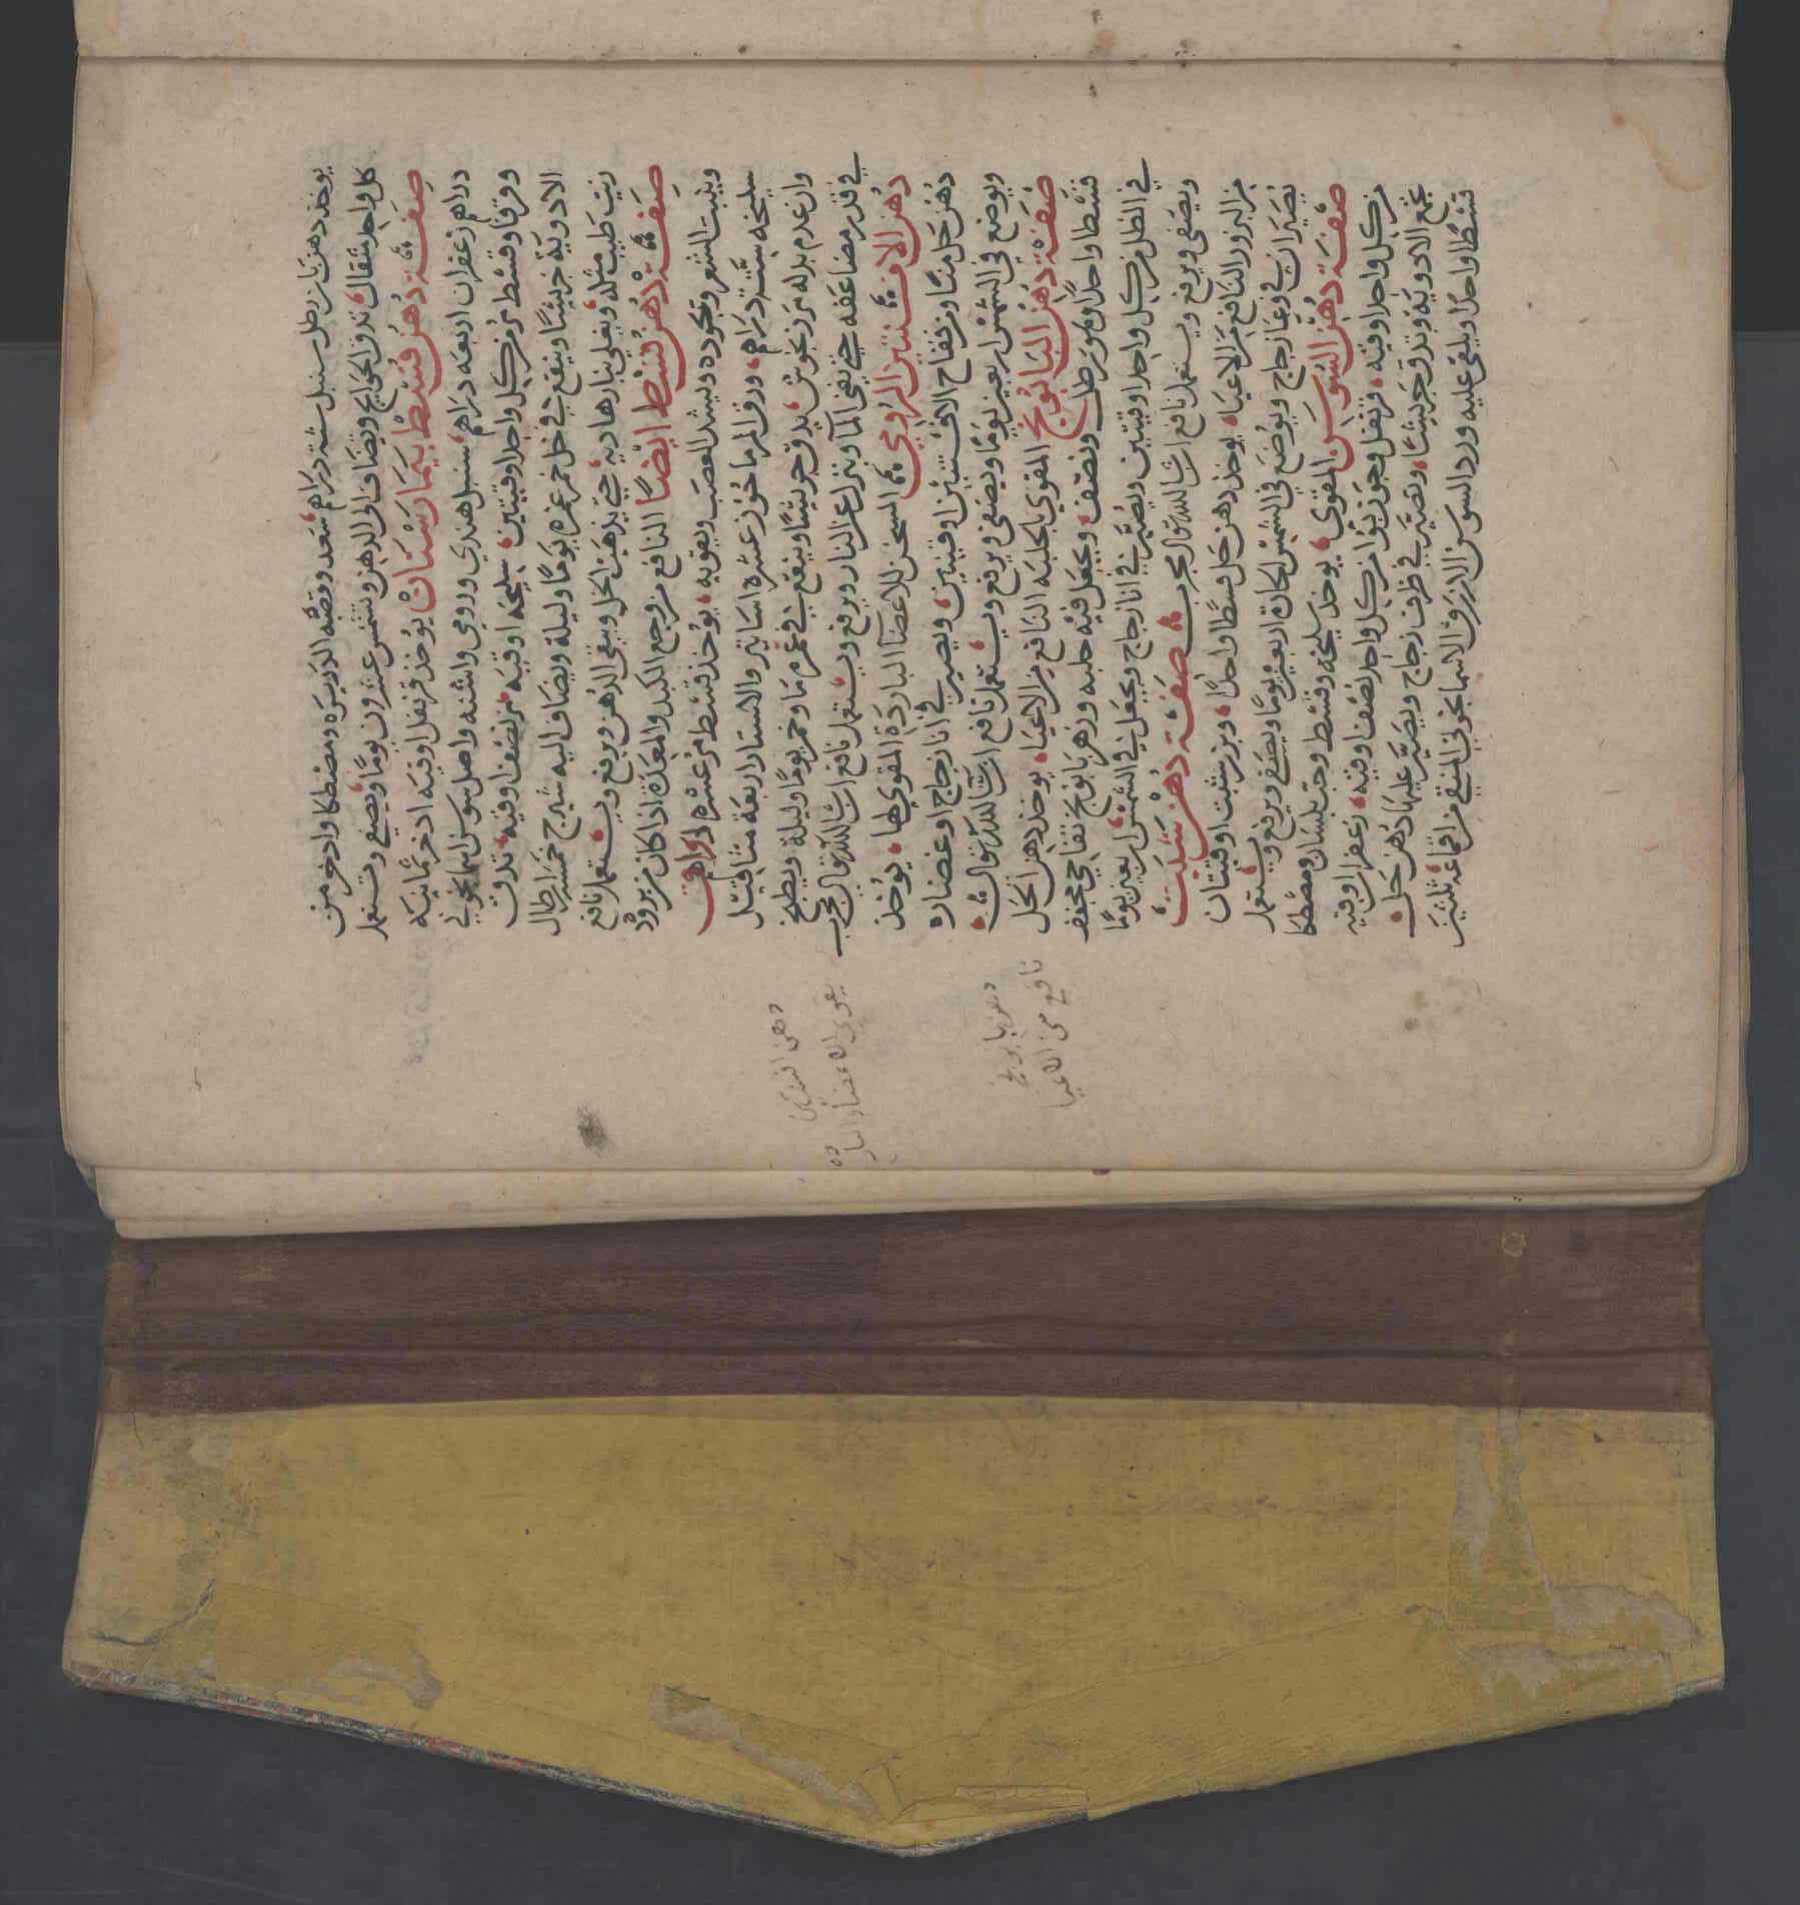 يوخذ دهن نار رطل سنبل ستة دراهم سعد وقصبه الذريره ومصطكا واذخر من
كل واحد مثقال تدق الحوايج وتضاف الى الدهن وتشمس عشرون يوما ويصفى وتستعمل
صفة دهن قسط بيمارستان يوخذ قرنفل اوقيه اذخر ثمانية
دراهم زعفران اربعه دراهم سنبل هندي ورومي واشنه واصل سوس اسمانجوني
وقرفا وقسط من كل واحد اوقيتين سليخه اوقيه مر نصف اوقيه تدق
الادوية جريشا وينقع في خل خمر غمره يوما وليلة ويضاف اليه شيرج خمسة ارطال
زيت طيب مثله ويغلى بنار هاديه حتى يذهب الخل ويبقى الدهن ويرفع ويستعمل نافع
صفة دهن قسط ايضا النافع من وجع الكبد والمعدة اذا كان من برود
وينبت الشعر ويجوده ويشد العصب ويقويه يوخذ قسط مر عشره دراهم
سليخه ستة دراهم ورق المرماخوز عشره اساتير والاستار اربعة مثاقيل
وان عدم بدله مرزنجوش يدق جريشا وينقع في غمره ما وخمر يوما وليلة ويطبخ
في قدر مضاعفه حتى يفنى الما وينزل عن النار ويرفع ويستعمل نافع ان شا الله تعالى مجرب
دهن الافسنتين الرومي السخن للاعضا الباردة المقوي لها يوخذ
دهن حل منا ومن تفاح الافسنتين اوقيتين ويصير في انا زجاج او غضاره
ويوضع في الشمس اربعين يوما ويصفى ويرفع ويستعمل نافع ان شا الله تعالى
صفة دهن البابونج المقوي بالحلبه النافع من الاعيا يوخذ دهن الحل
قسطا واحدا وهو رطل ونصف ويجعل فيه حلبه وزهر بابونج تفاحي مجفف
في الظل من كل واحد اوقيتين ويصير في انا زجاج ويجعل في الشمس اربعين يوما
ويصفى ويرفع ويستعمل نافع ان شا الله تعالى مجرب صفة دهن شبت
من البرور النافع من الاعيا يوخذ دهن حل قسطا واحدا وبزر شبت اوقيتان
يصيران في وعا زجاج ويوضع في الشمس الحارة اربعين يوما ويصفى ويرفع ويستعمل
صفة دهن السوسن المقوي يوخذ سليخه وقسط وحب بلسان ومصطكا
من كل واحد اوقيه قرنفل وجوز بوا من كل واحد نصف اوقيه زعفران اوقيه
تجمع الادوية وتدق جريشا وتصير في ظرف زجاج ويصير عليها دهن حل
قسطا واحدا ويلقى عليه ورد السوسن الازرق الاسمانجوني المنقى من اقماعه ثلثين
دهن افسنتين
يقوي الاعضا الباردة
دهن بابونج
نافع من الاعيا